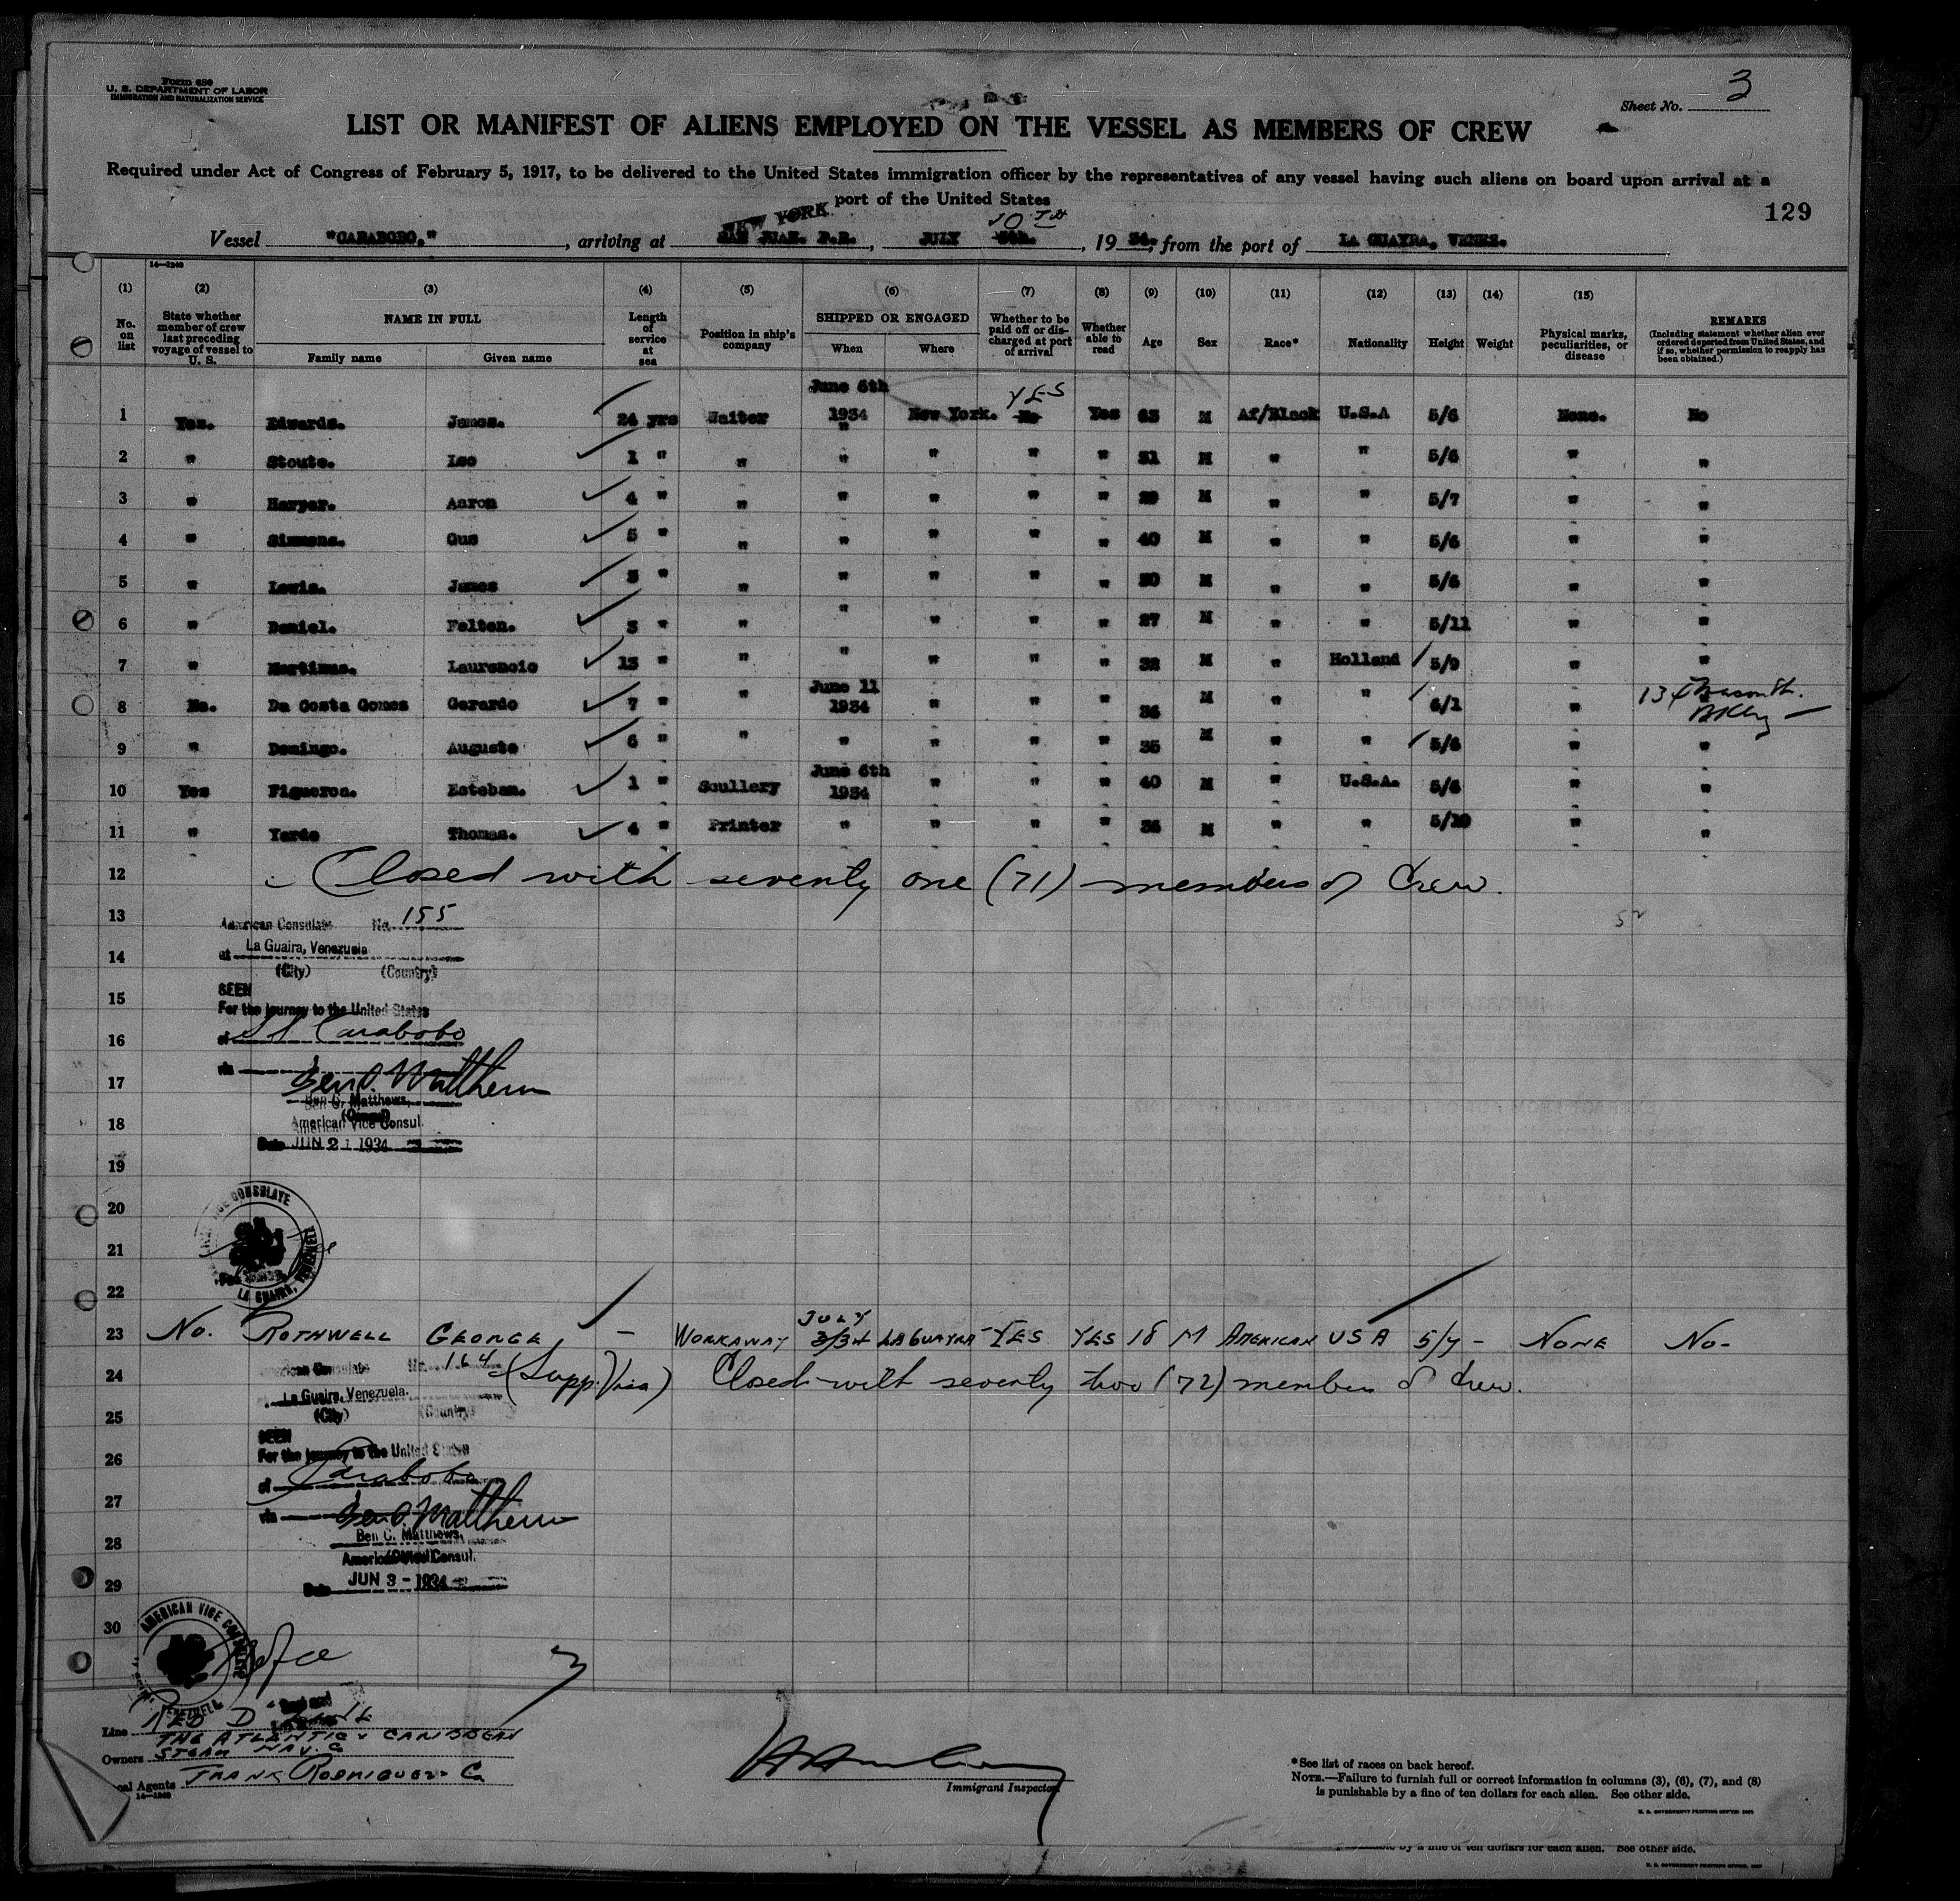 Form 680
U. S. DEPARTMENT OF LABOR
IMMIGRATION AND NATURALIZATION SERVICE
Sheet No. 3
LIST OR MANIFEST OF ALIENS EMPLOYED ON THE VESSEL AS MEMBERS OF CREW
Required under Act of Congress of February 5, 1917, to be delivered to the United States immigration officer by the representatives of any vessel having such aliens on board upon arrival at a
port of the United States
129
NEW YORK 10TH
Vessel "CARABOBO," , arriving at SAN JUAN. P.R. , JULY , 19 34. from the port of LA GUAYRA, VENEZ.
14—1240
(1) (2) (3) (4) (5) (6) (7) (8) (9) (10) (11) (12) (13) (14) (15)
No. on list State whether member of crew last preceding voyage of vessel to U. S. NAME IN FULL Family name Given name Length of service at sea Position in ship's company SHIPPED OR ENGAGED When Where Whether to be paid off or discharged at port of arrival Whether able to read Age Sex Race* Nationality Height Weight Physical marks, peculiarities, or disease REMARKS (Including statement whether alien ever ordered deported from United States, and if so, whether permission to reapply has been obtained.)
June 6th YES
1 Yes. Edwards. James. 24 yrs Waiter 1934 New York. No Yes 63 M Af/Black U.S.A 5/6 None. No
2 " Stoute. Leo 1 " " " " " " 31 M " " 5/6 " "
3 " Harper. Aaron 4 " " " " " " 29 M " " 5/7 " "
4 " Simmons. Gus 5 " " " " " " 40 M " " 5/6 " "
5 " Lewis. James 3 " " " " " " 30 M " " 5/6 " "
6 " Daniel. Felten. 3 " " " " " " 27 M " " 5/11 " "
7 " Martinus. Laurencio 13 " " " " " " 32 M " Holland 5/9 " "
June 11
8 No. Da Costa Gomes Gerardo 7 " " 1934 " " " 36 M " " 6/1 "
9 " Domingo. Auguste 6 " " " " " " 35 M " " 5/6 " "
June 6th
10 Yes Figueroa. Esteban. 1 " Scullery 1934 " " " 40 M " U.S.A. 5/6 " "
11 " Yarde Thomas. 4 " Printer " " " " 36 M " " 5/10 " "
12 Closed with seventy one (71) members of Crew.
13 American Consulate No. 155
14 at La Guaira, Venezuela
(City) (Country)
15 SEEN
For the journey to the United States
16 of SS Carabobo
via
17 Ben C. Matthews
Ben C. Matthews,
18 American Vice Consul.
Date JUN 21 1934
19
20
21
22
LA GUAIRA,
JULY
23 No. ROTHWELL GEORGE, – WORKAWAY 3/34 LA GUAYRA YES YES 18 M AMERICAN USA 5/7 – NONE No–
24 American Consulate No. 164 (Supp. Visa) Closed with seventy two (72) members of Crew.
La Guaira, Venezuela.
25 (City) (Country)
SEEN
26 For the journey to the United States
of Carabobo
27 via Ben C. Matthews
Ben C. Matthews,
28 American Vice Consul.
29 Date JUN 3 - 1934
30
AMERICAN VICE CONSULATE
VENEZUELA
Line RED D LINE
THE ATLANTIC & CARIBBEAN
Owners STEAM NAV. Co
Local Agents FRANK RODRIGUEZ Co
14—1240
Immigrant Inspector.
*See list of races on back hereof.
NOTE.—Failure to furnish full or correct information in columns (3), (6), (7), and (8)
is punishable by a fine of ten dollars for each alien. See other side.
U. S. GOVERNMENT PRINTING OFFICE
is punishable by a fine of ten dollars for each alien. See other side.
U. S. GOVERNMENT PRINTING OFFICE